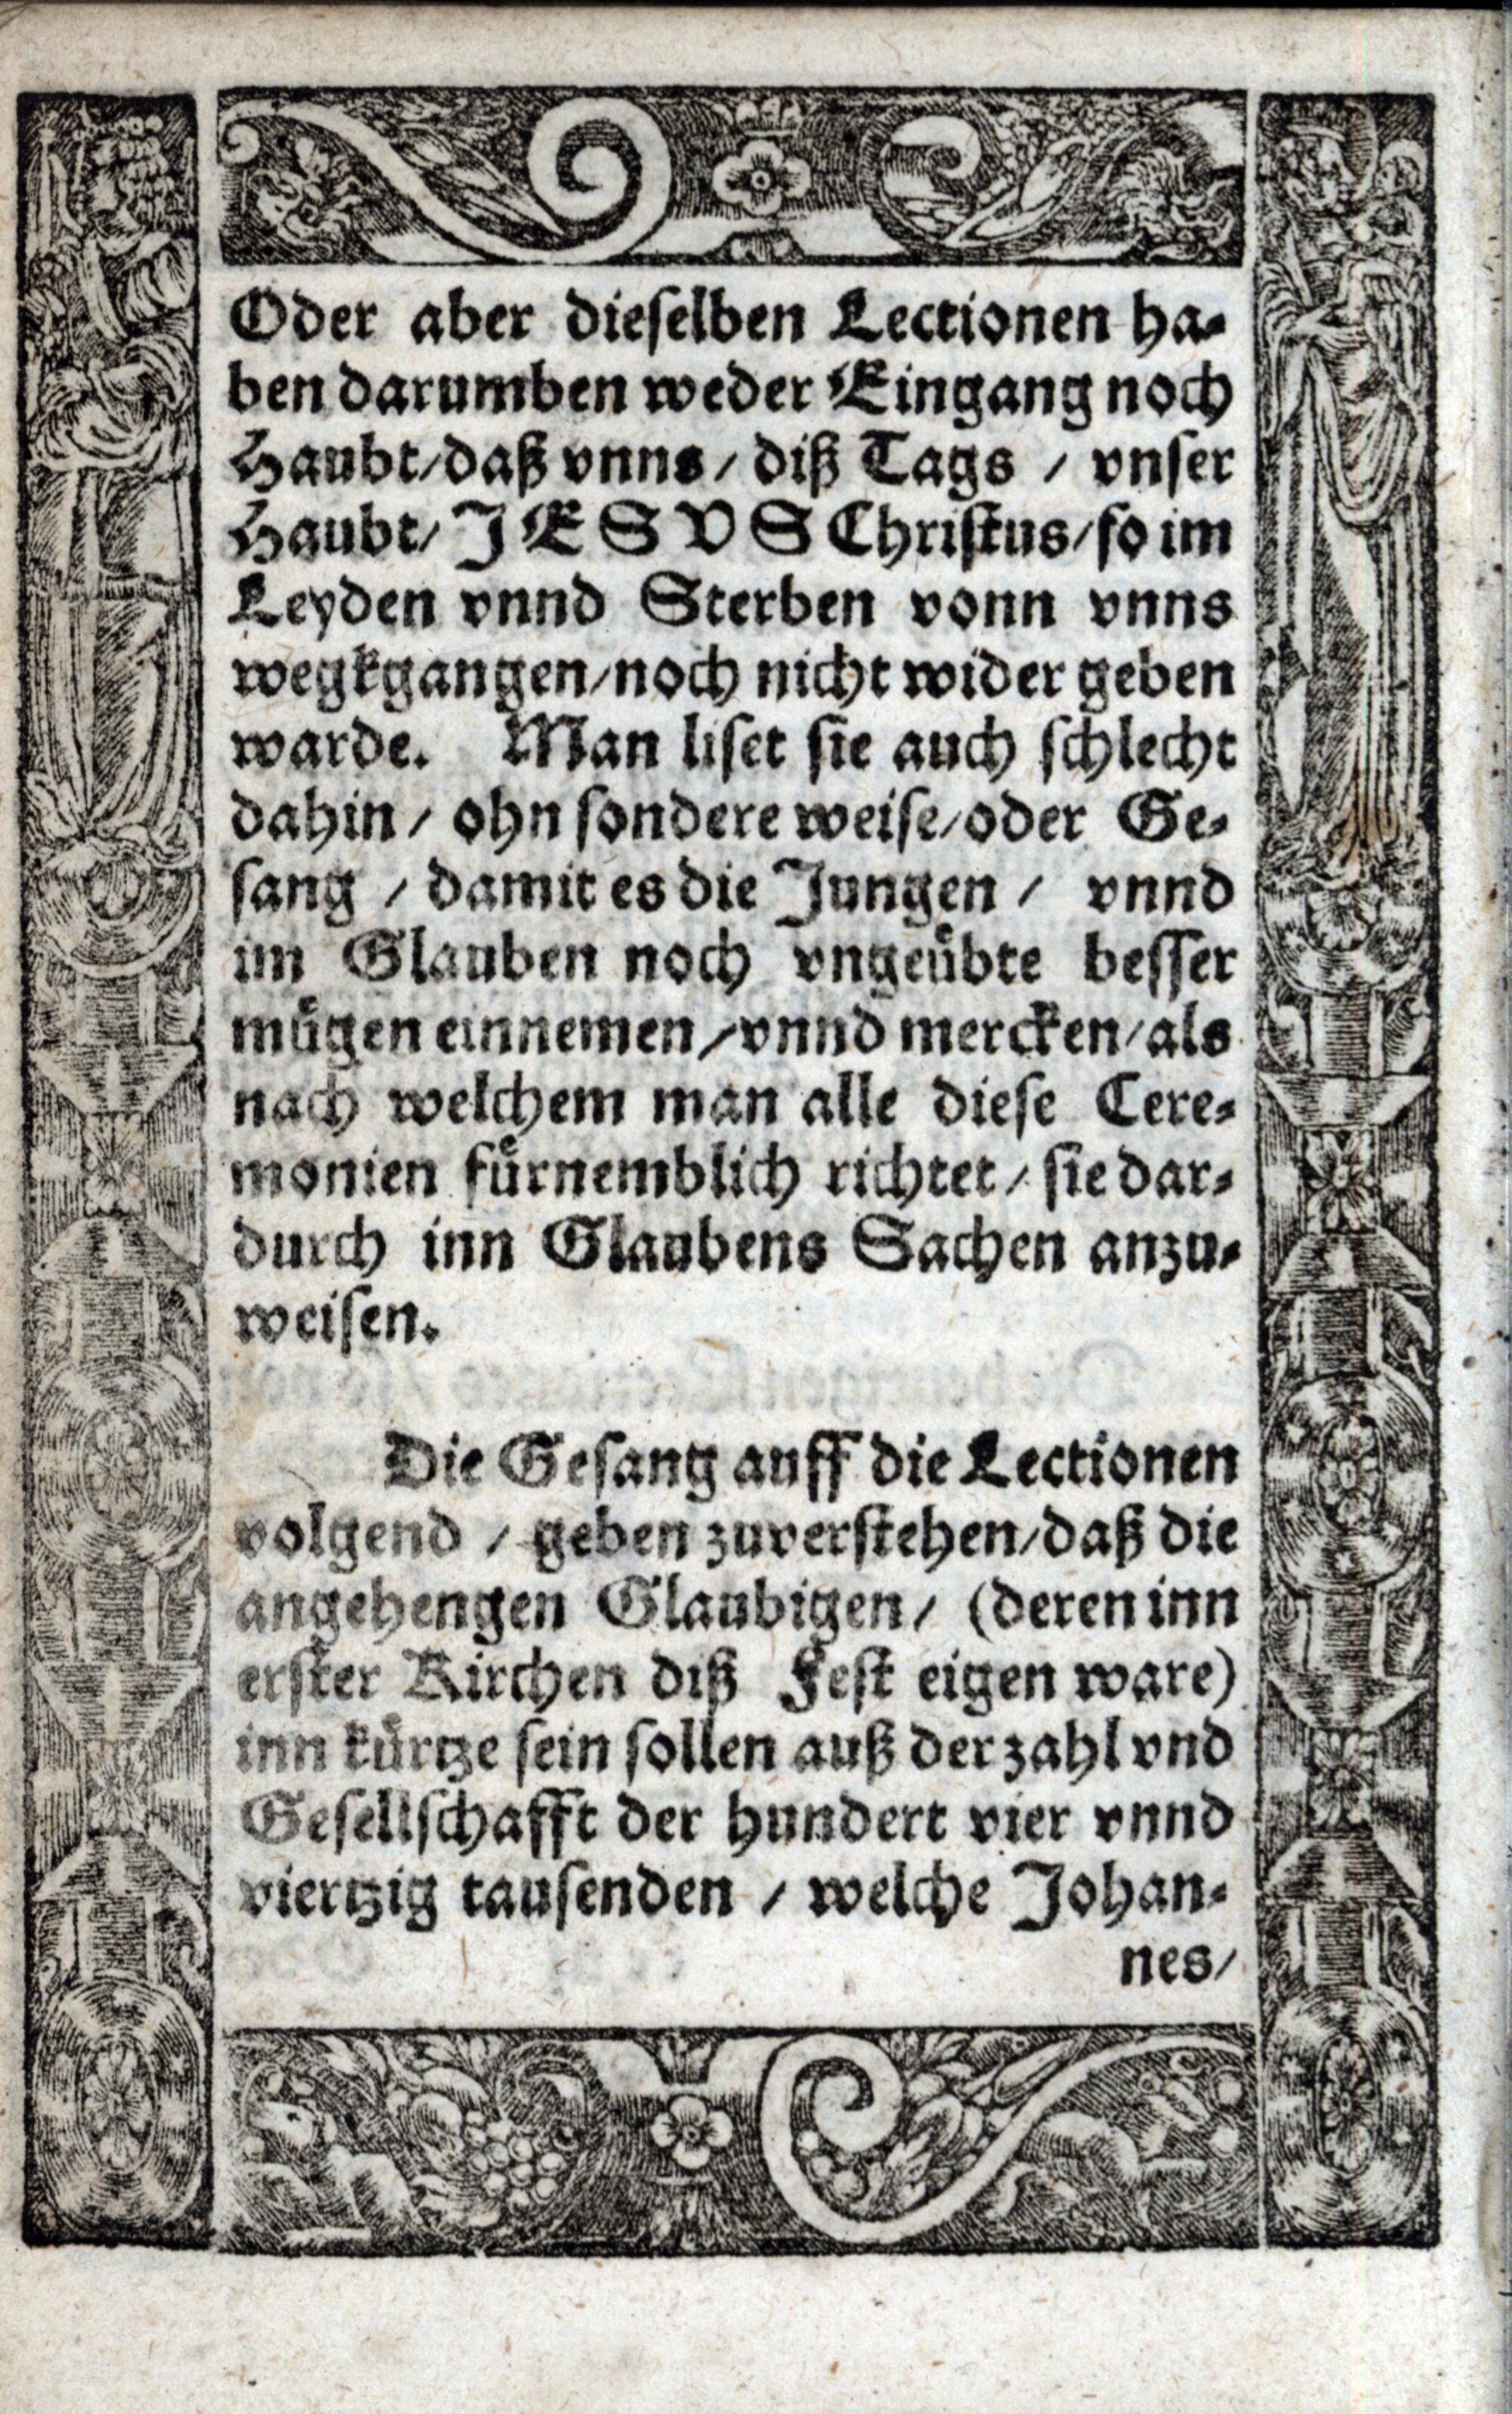 Oder aber dieselben Lectionen ha-
ben darumben weder Eingang noch
Haubt/daß vnns/ diß Tags / vnser
Haubt/ JESVS Christus/so im
Leyden vnnd Sterben vonn vnns
wegkgangen/noch nicht wider geben
warde. Man liset sie auch schlecht
dahin / ohn sondere weise/oder Ge-
sang / damit es die Jungen / vnnd
im Glauben noch vngeuͤbte besser
muͤgen einnemen/vnnd mercken/als
nach welchem man alle diese Cere-
monien fuͤrnemblich richtet/ sie dar-
durch inn Glaubens Sachen anzu-
weisen.
Die Gesang auff die Lectionen
volgend / geben zuverstehen/daß die
angehengen Glaubigen/ (deren inn
erster Kirchen diß Fest eigen ware)
inn kuͤrtze sein sollen auß der zahl vnd
Gesellschafft der hundert vier vnnd
viertzig tausenden / welche Johan-
nes/